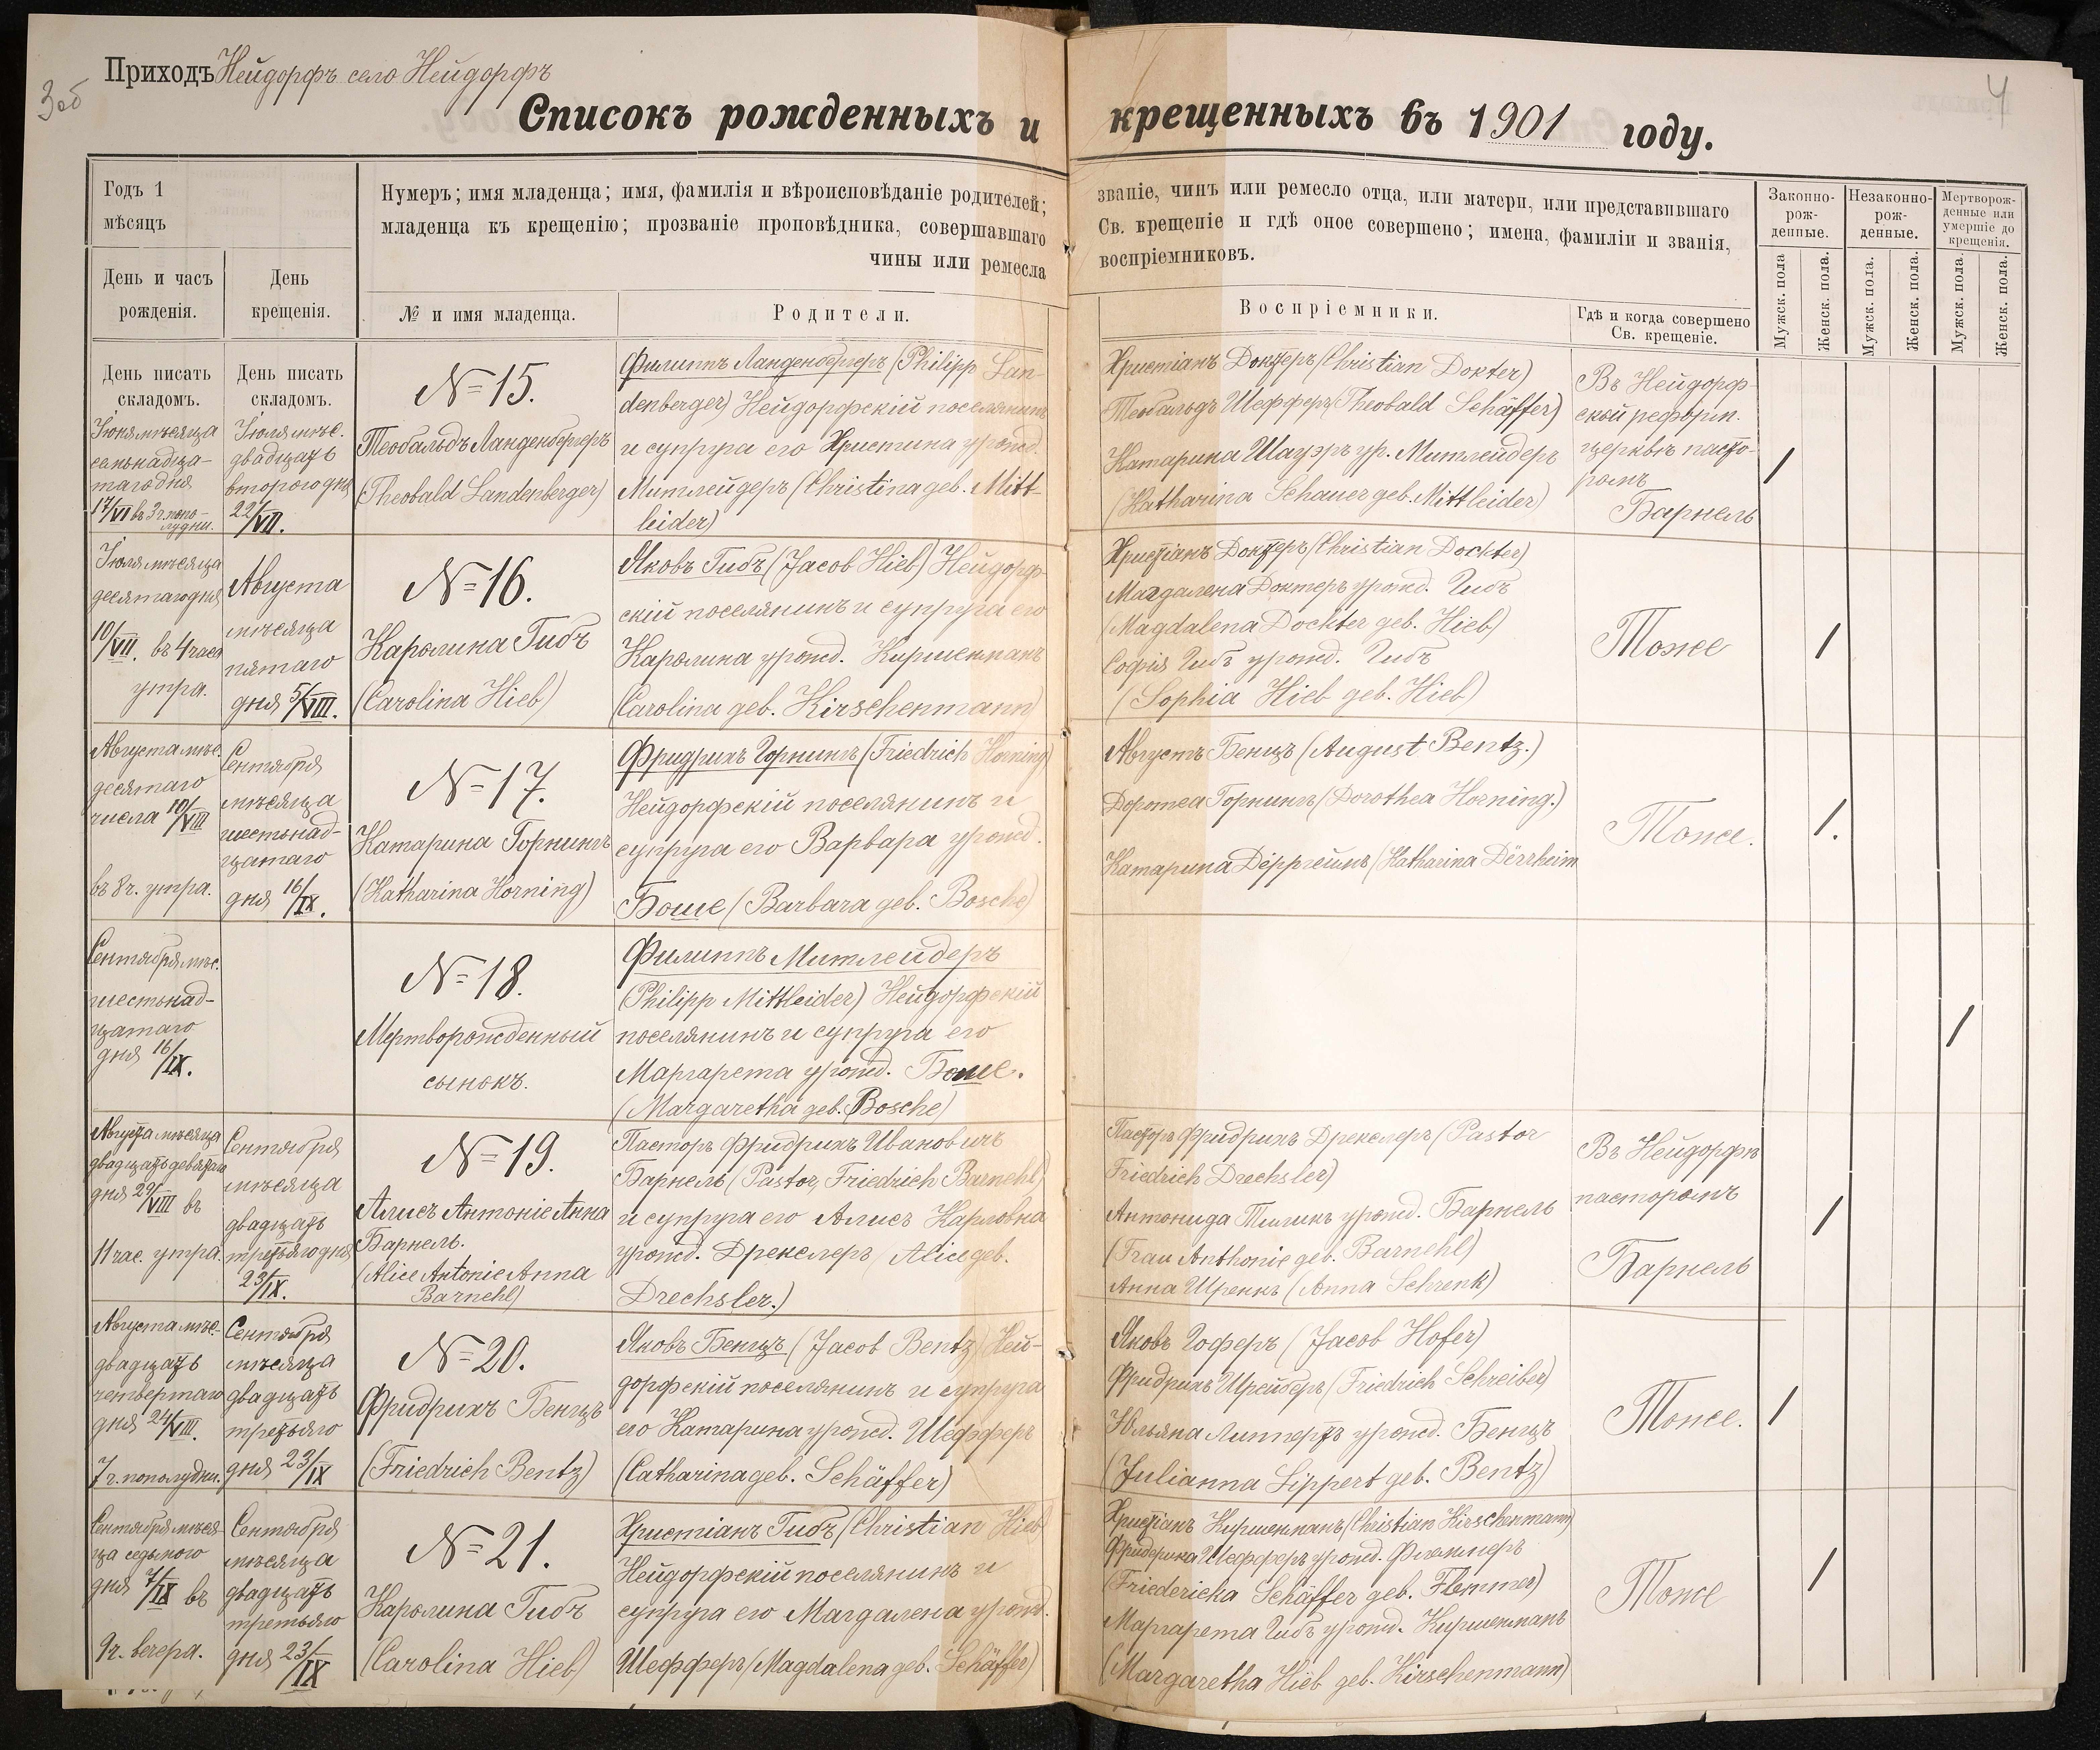 3об
Приходъ Нейдорфъ село Нейдорфъ
4
Списокъ рожденныхъ и крещенныхъ въ 1901 году.
Годъ 1
мѣсяцъ
День и часъ
рожденія.
День
крещенія.
Нумеръ; имя младенца; имя, фамилія и вѣроисповѣданіе родителей; званіе, чинъ или ремесло отца, или матери, или представившаго
младенца къ крещенію; прозваніе проповѣдника, совершавшаго Св. крещеніе и гдѣ оное совершено; имена, фамиліи и званія,
чины или ремесла воспріемниковъ.
№ и имя младенца.
Родители.
Воспріемники.
Гдѣ и когда совершено
Св. крещеніе.
Законно-
рож-
денные.
Незаконно-
рож-
денные.
Мертворож-
денные или
умершіе до
крещенія.
Мужск. пола
Женск. пола.
Мужск. пола.
Женск. пола.
Мужск. пола.
Женск. пола.
День писать
складомъ.
День писать
складомъ.
Іюня мѣсяца
семьнадца-
таго дня
17/VI въ 3 ч. попо-
лудни.
Іюля мѣс.
двадцать
второго дня
22/VII.
№ 15.
Теобальдъ Ланденбергеръ
(Theobald Landenberger)
Филиппъ Ланденбергеръ (Philipp Lan-
denberger) Нейдорфскій поселянинъ
и супруга его Христина урожд.
Митлейдеръ (Christina geb. Mitt-
leider)
Христіанъ Доктеръ (Christian Dokter)
Теобальдъ Шефферъ (Theobald Schäffer)
Катарина Шауэръ ур. Митлейдеръ
(Katharina Schauer geb. Mittleider)
Въ Нейдорф-
ской реформ.
церквѣ пасто-
ромъ
Барнель
/
Іюля мѣсяца
десятаго дня
10/VII. въ 4 часа
утра.
Августа
мѣсяца
пятаго
дня 5/VIII.
№ 16.
Каролина Гибъ
(Carolina Hieb)
Яковъ Гибъ (Jacob Hieb) Нейдорф-
скій поселянинъ и супруга его
Каролина урожд. Киршенманъ
(Carolina geb. Kirschenmann)
Христіанъ Доктеръ (Christian Dockter)
Магдалена Доктеръ урожд. Гибъ
(Magdalena Dockter geb. Hieb)
Софія Гибъ урожд. Гибъ
(Sophia Hieb geb. Hieb)
Тоже
/
Августа мѣс.
десятаго
числа 10/VIII
въ 8 ч. утра.
Сентября
мѣсяца
шестьнад-
цатаго
дня 16/IX.
№ 17.
Катарина Горнингъ
(Katharina Horning)
Фридрихъ Горнингъ (Friedrich Horning)
Нейдорфскій поселянинъ и
супруга его Варвара урожд.
Боше (Barbara geb. Bosche)
Августъ Бенцъ (August Bentz.)
Доротеа Горнингъ (Dorothea Horning.)
Катарина Дёрргеймъ (Katharina Dërrheim
Тоже.
/.
Сентября мѣс.
шестьнад-
цатаго
дня 16/IX.
№ 18.
Мертворожденный
сынокъ.
Филиппъ Митлейдеръ
(Philipp Mittleider) Нейдорфскій
поселянинъ и супруга его
Маргарета урожд. Боше.
(Margaretha geb. Bosche)
/
Августа мѣсяца
двадцать девятаго
дня 29/VIII въ
11 час. утра.
Сентября
мѣсяца
двадцать
третьяго дня
23/IX.
№ 19.
Алисъ Антоніе Анна
Барнель.
(Alice Antonie Anna
Barnehl)
Пасторъ Фридрихъ Ивановичъ
Барнель (Pastor, Friedrich Barnehl)
и супруга его Алисъ Карловна
урожд. Дрекслеръ (Alice geb.
Drechsler.)
Пасторъ Фридрихъ Дрекслеръ (Pastor
Friedrich Drechsler)
Антонида урожд. Барнель
(Frau Anthonie geb. Barnehl)
Анна Шренкъ (Anna Schrenk)
Въ Нейдорфѣ
пасторомъ
Барнель
/
Августа мѣс.
двадцать
четвертаго
дня 24/VIII.
7 ч. пополудни.
Сентября
мѣсяца
двадцать
третьяго
дня 23/IX
№ 20.
Фридрихъ Бенцъ
(Friedrich Bentz)
Яковъ Бенцъ (Jacob Bentz) Ней-
дорфскій поселянинъ и супруга
его Катарина урожд. Шефферъ
(Catharina geb. Schäffer)
Яковъ Гоферъ (Jacob Hofer)
Фридрихъ Шрейберъ (Friedrich Schreiber)
Юльяна Липпертъ урожд. Бенцъ
(Julianna Lippert geb. Bentz)
Тоже.
/
Сентября мѣся-
ца седьмого
дня 7/IX въ
9 ч. вечера.
Сентября
мѣсяца
двадцать
третьяго
дня 23/IX
№ 21.
Каролина Гибъ
(Carolina Hieb)
Христіанъ Гибъ (Christian Hieb)
Нейдорфскій поселянинъ и
супруга его Магдалена урожд.
Шефферъ (Magdalena geb. Schäffer)
Христіанъ Киршенманъ (Christian Kirschenmann)
Фридерика Шефферъ урожд. Флеммеръ
(Friedericka Schäffer geb. Flemmer)
Маргарета Гибъ урожд. Киршенманъ
(Margaretha Hieb geb. Kirschenmann)
Тоже
/